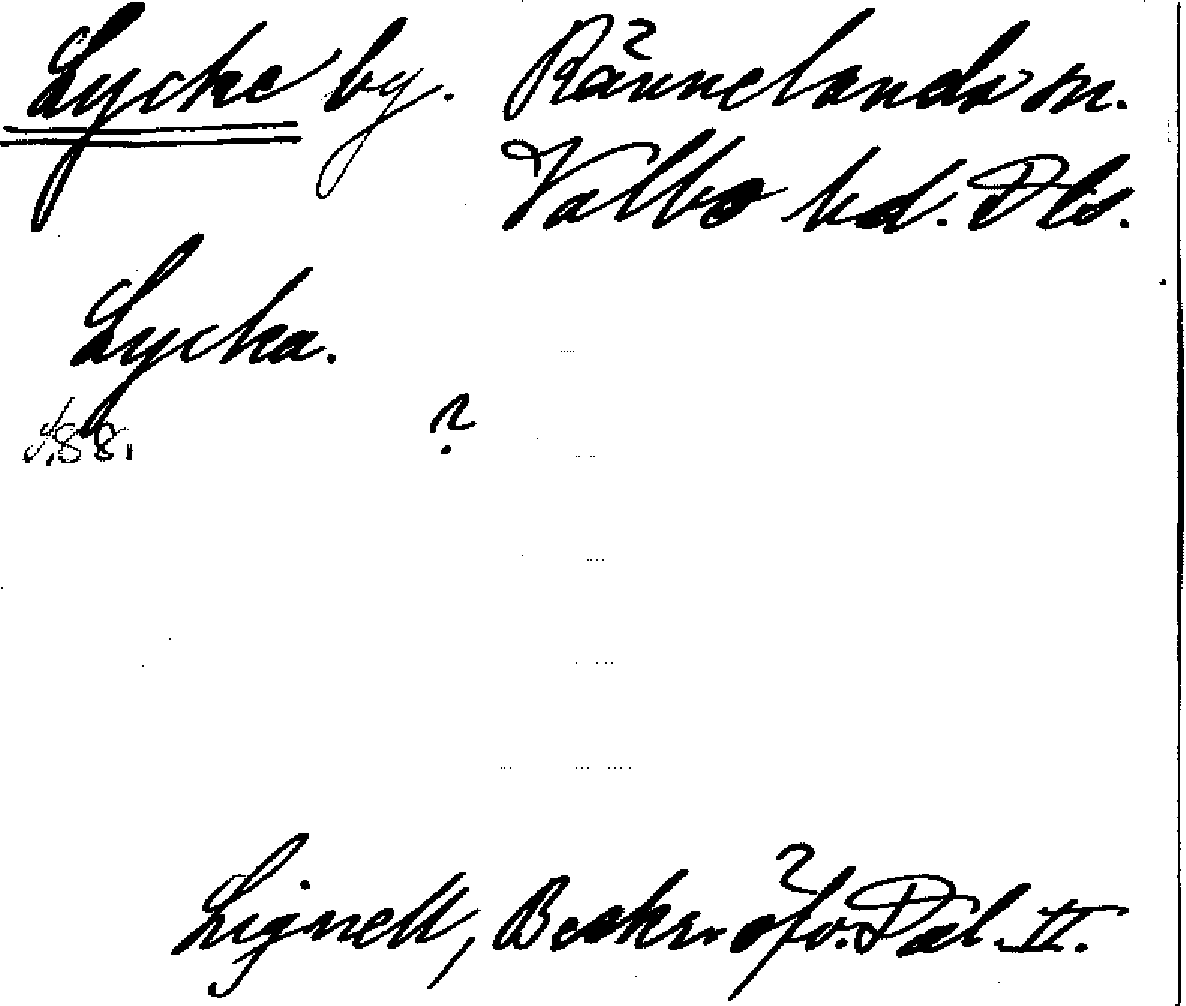 Lycke by. Rännelands sn.
Valbo hd. Dls.
Lycka.
s. 88. ?
Lignell, Beskr. öfv. Dal. II.